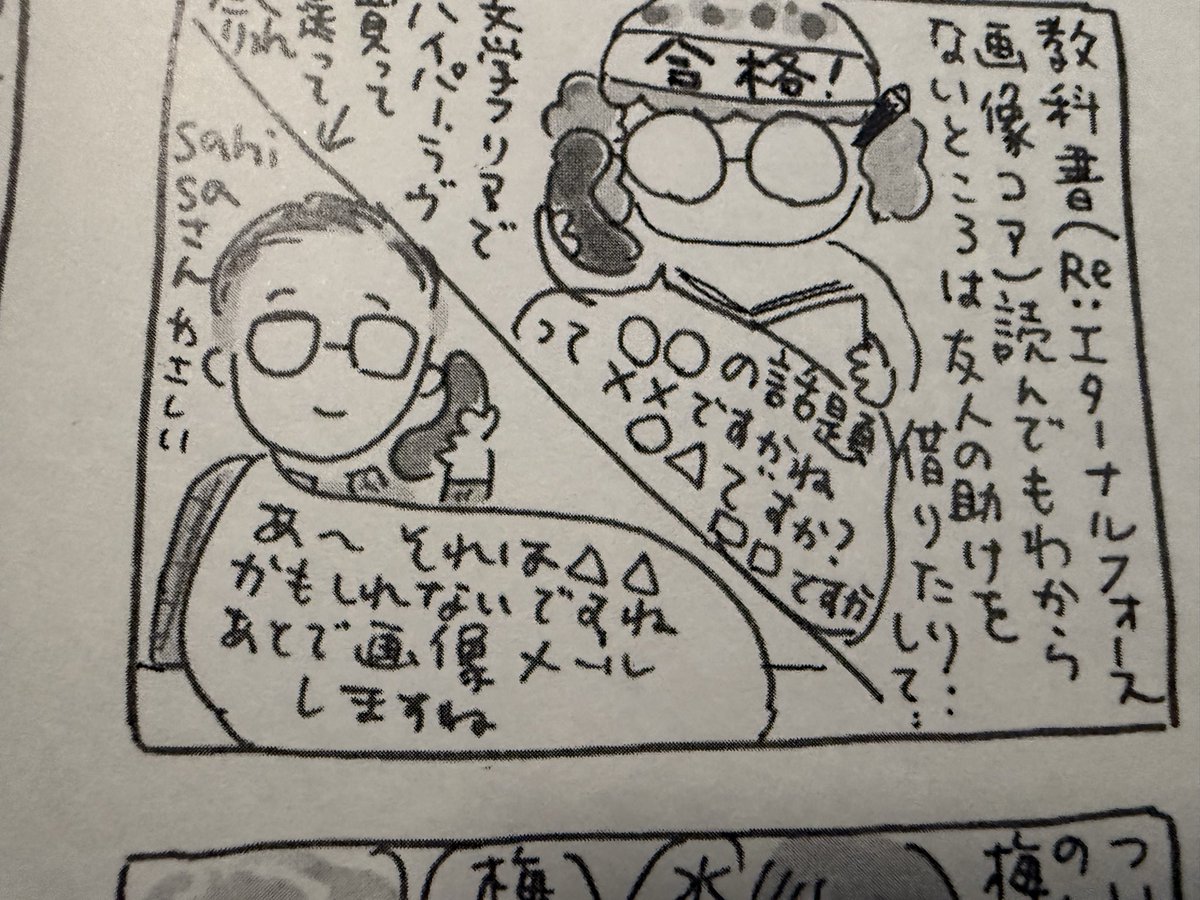 教科書(Re:エターナルフォース
画像コア)読んでもわから
ないところは友人の助けを
借りたり…
して…
合格!
文学フリマで
ハイパーラヴ
買って
○○の話題
××ですかね
○△ですか?
□□ですか
って
sahi
saさん
やさしい
あ〜それは△△
かもしれないですね
あとで画像メール
しますね
の
梅
水
梅